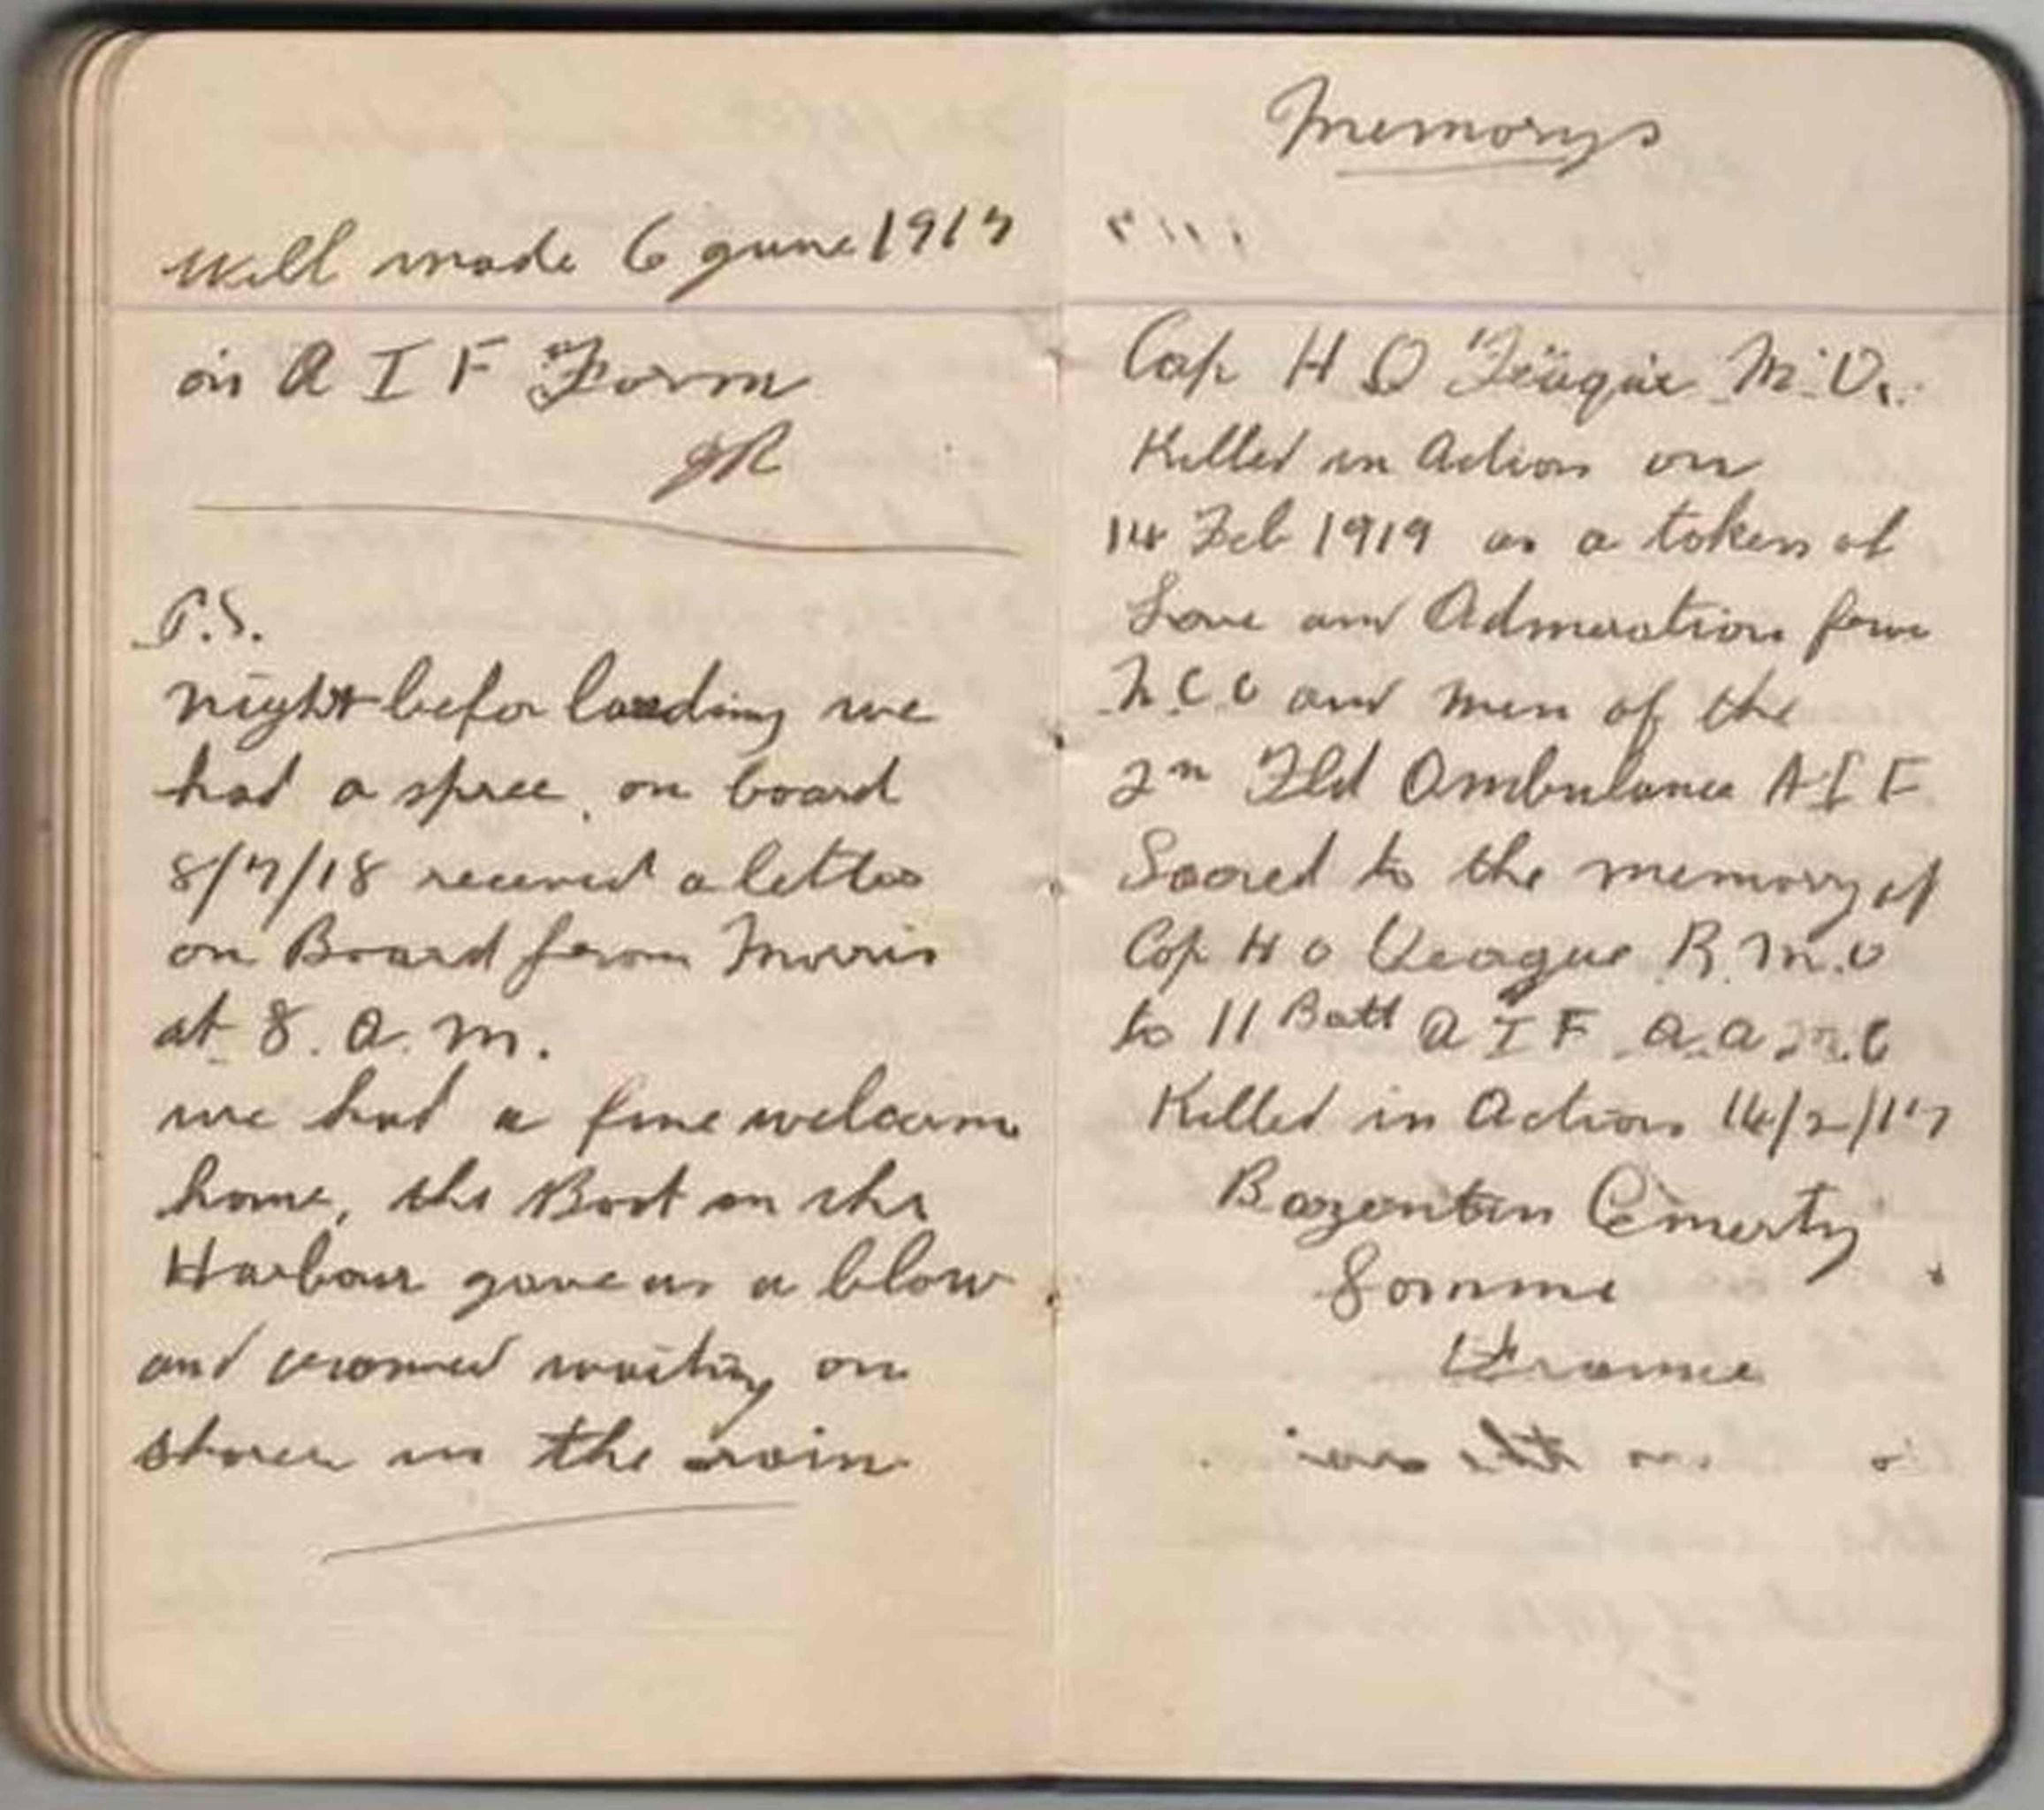 Will made 6 June 1917
on A I F Form
JR
P.S.
night befor landing we
had a spree, on board
8/7/18 received a letter
on Board from Morris
at 8. A. M.
we had a fine welcome
home, the Boat on the
Harbour gave us a blow
and crowned waiting on
shore in the rain
Memorys
Cap H O Teague M.O.
Killed in Action on
14 Feb 1919 as a token of
Love and Admeration from
N.C.O and men of the
2n Fld Ambulance A I F
Sacred to the memory of
Cap H O Teague R.M.O
to 11 Batt A I F A.A.M.C
Killed in Action 14/2/17
Bazentin Cemerty
Somme
France